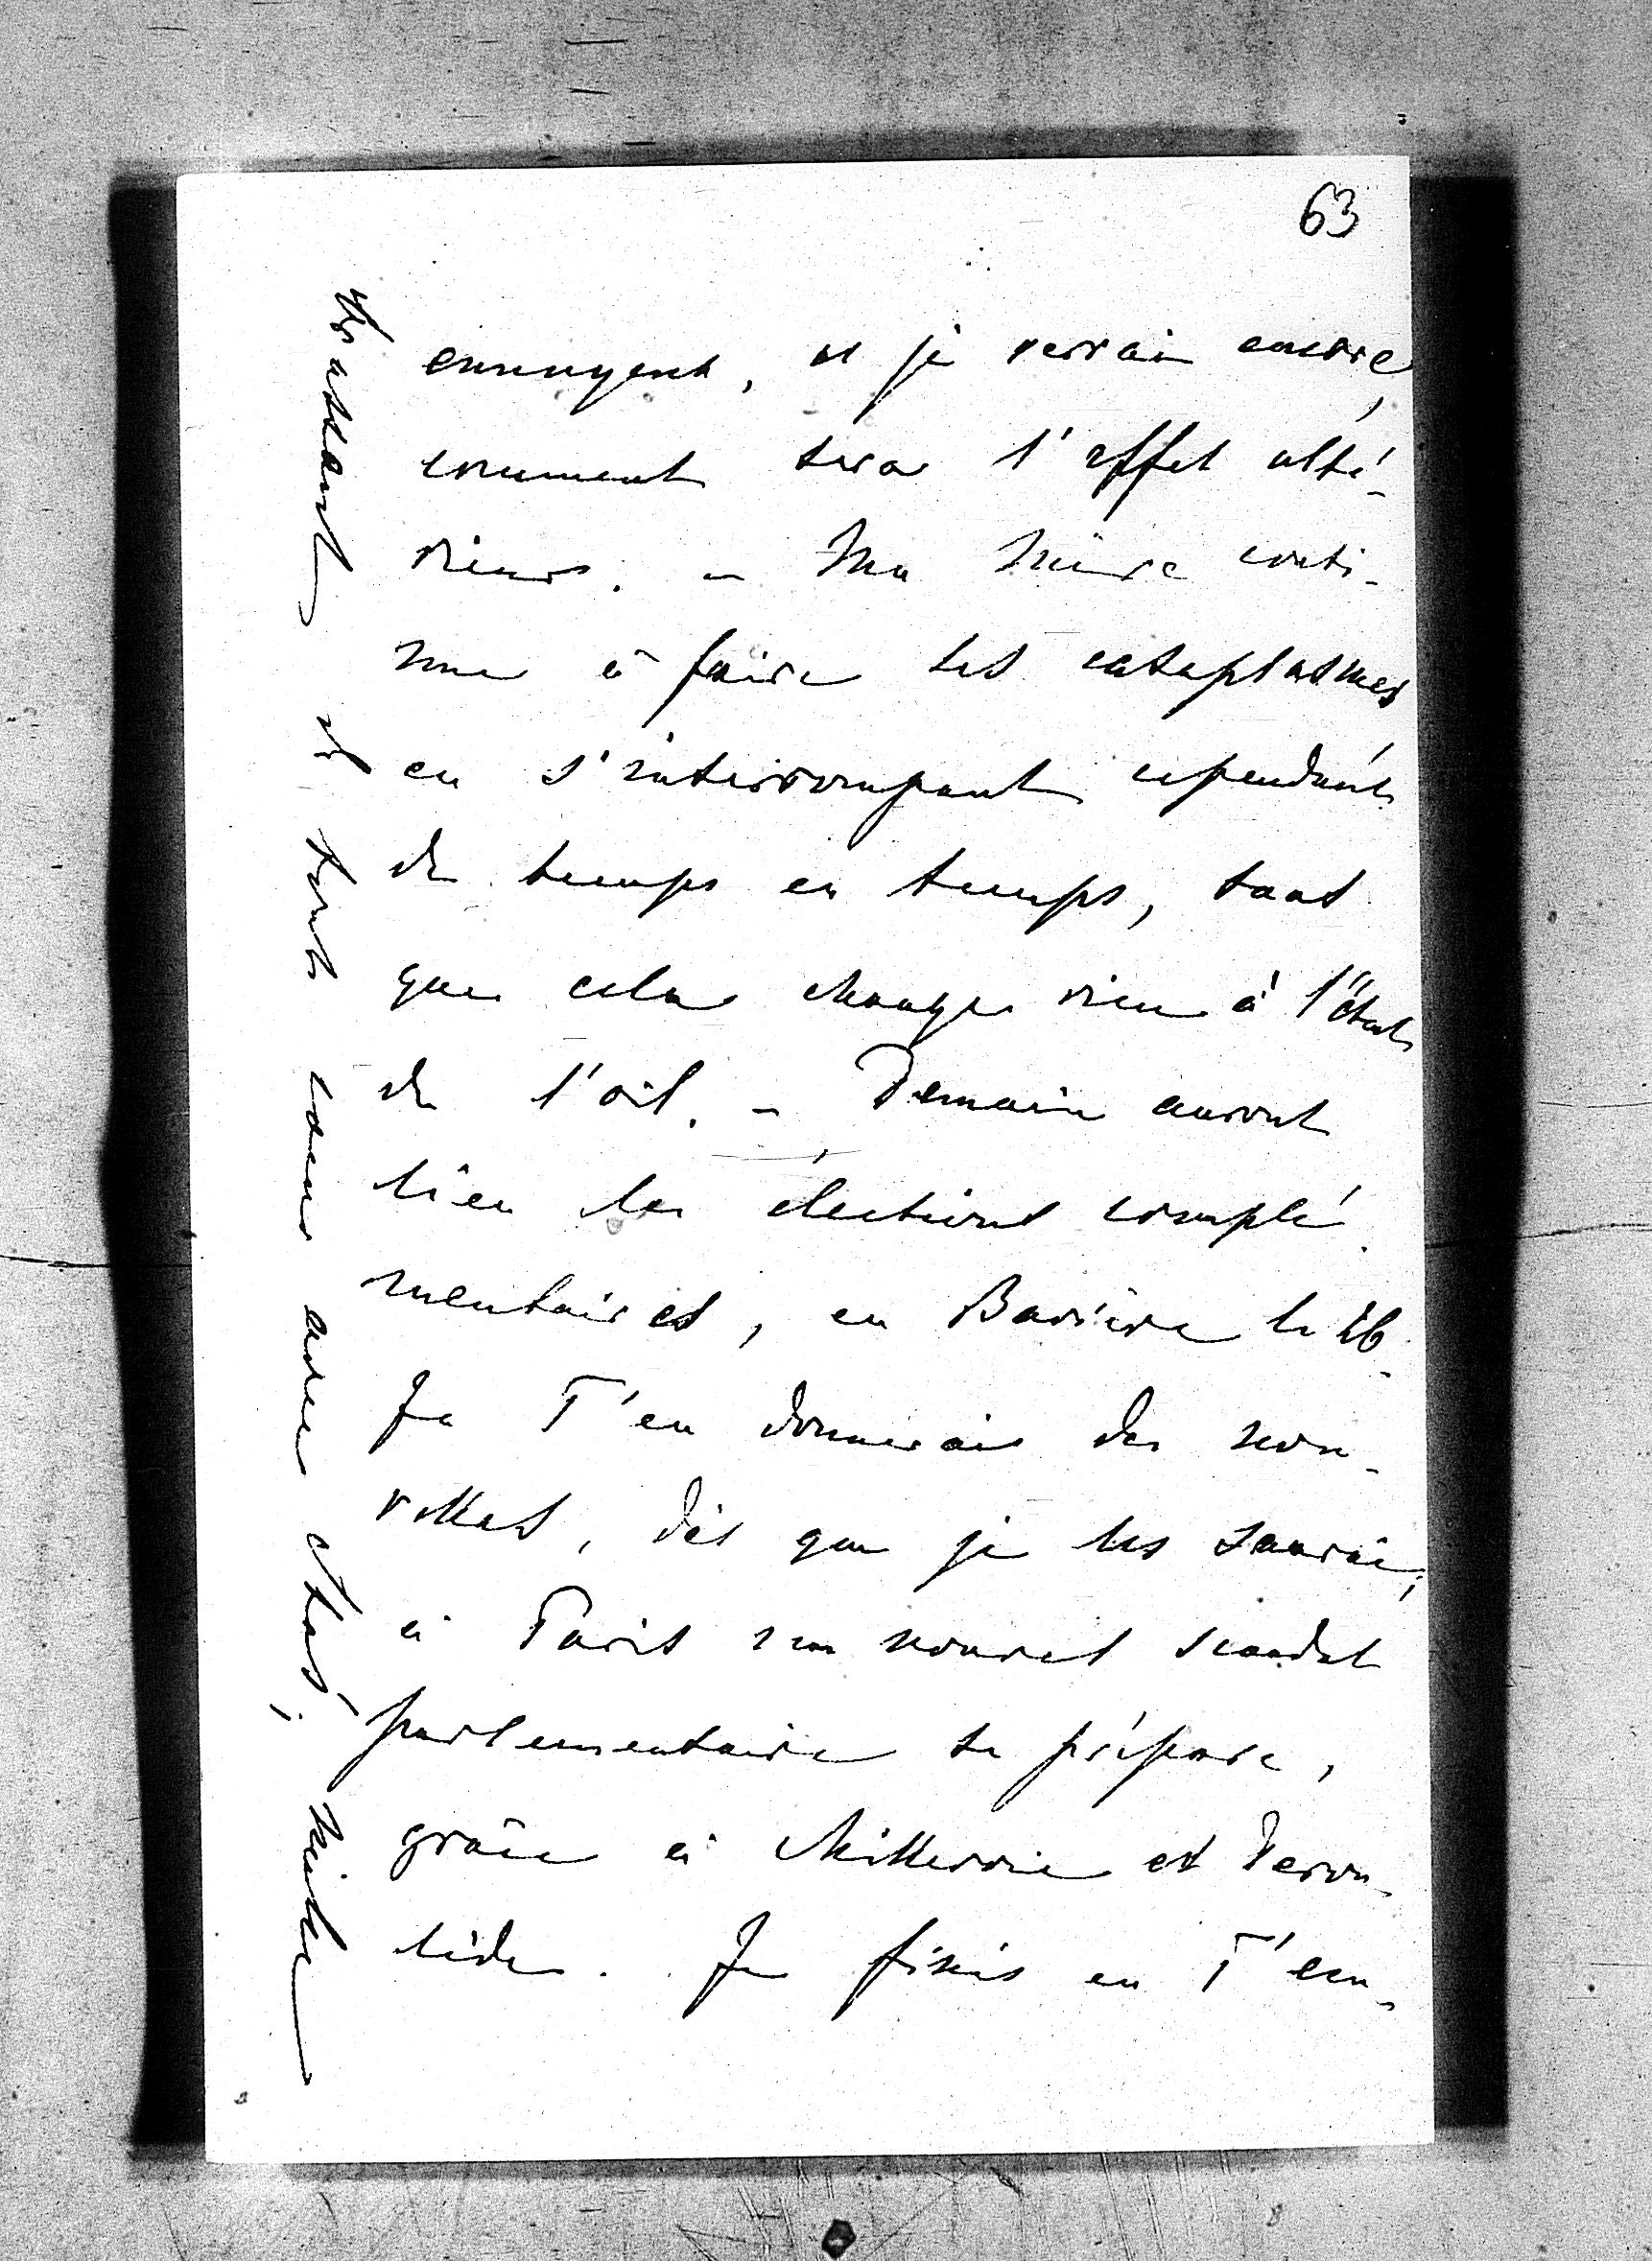 63
ennuyent, et je verrai encore,
comment sera l'effet ulté-
rieur. – Ma Mère conti-
nue à faire ses cataplasmes
en s'interrompant cependant
de temps en temps, sans
que cela change rien à l'état
de l'œil. – Demain auront
lieu les élections complé-
mentaires, en Bavière le 26.
Je T'en donnerais des nou-
velles, dès que je les saurai;
à Paris un nouvel scandal
parlementaire se prépare,
grâce à Millevoie et Derou-
lède. Je finis en T'em-
brassant de tout cœur